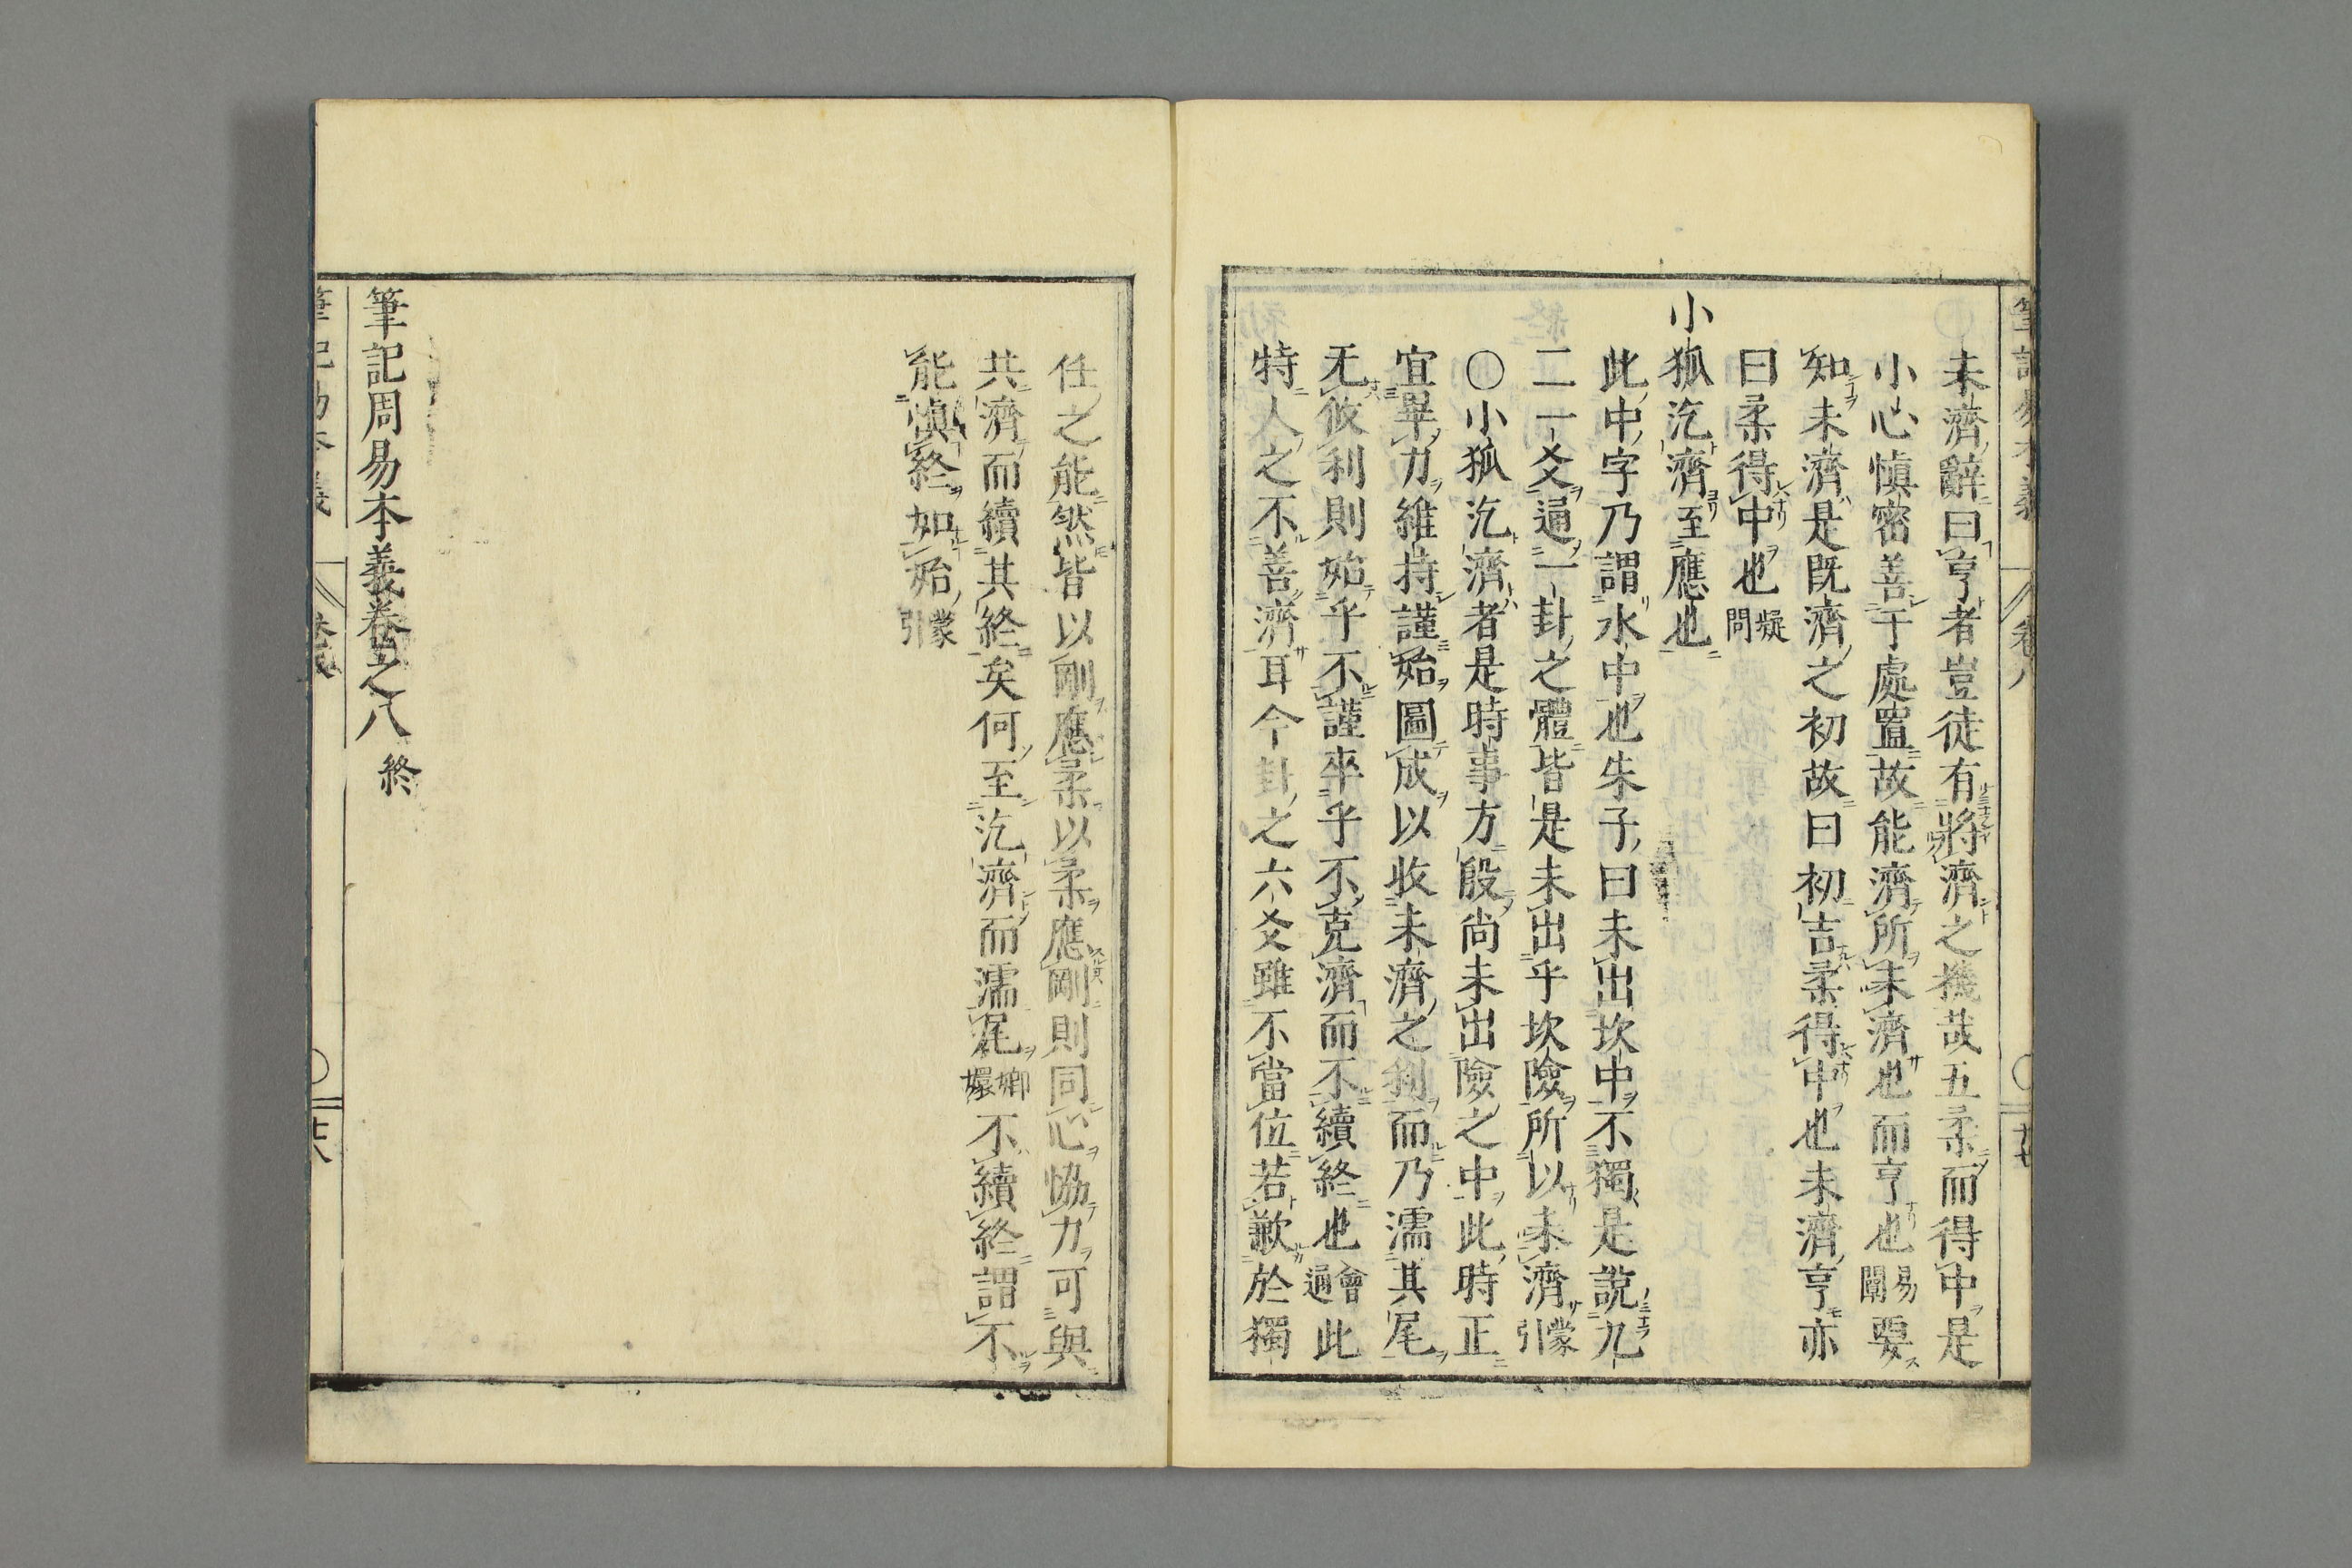 未濟辭曰亨者豈徒有將濟之機哉五柔而得中是
小心慎密善于處置故能濟所未濟也而亨也易闡要
知未濟是既濟之初故曰初吉柔得中也未濟亨亦
曰柔得中也疑問
小狐汔濟至應也
此中字乃謂水中也朱子曰未出坎中不獨是說九
二一爻通一卦之體皆是未出乎坎險所以未濟蒙引
○小狐汔濟者是時事方殷尚未出險之中此時正
宜畢力維持謹始圖成以收未濟之利而乃濡其尾
无攸利則始乎不謹卒乎不克濟而不續終也會通此
特人之不善濟耳今卦之六爻雖不當位若歉於獨
任之能然皆以剛應柔以柔應剛則同心協力可與
共濟而續其終矣何至汔濟而濡尾不續終謂不
能慎終如始蒙引
筆記周易本義卷之八終